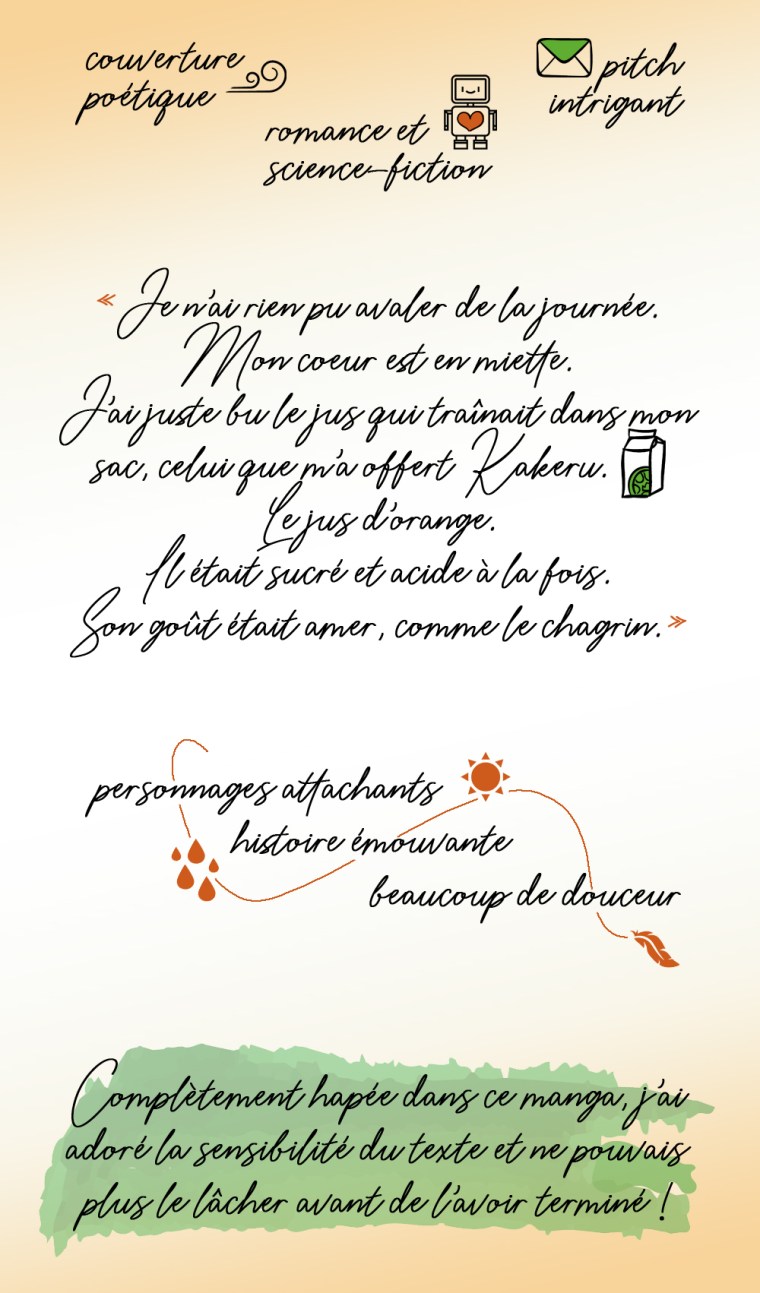 couverture
poétique
pitch
intrigant
romance et
science-fiction
« Je n'ai rien pu avaler de la journée.
Mon coeur est en miette.
J'ai juste bu le jus qui traînait dans mon
sac, celui que m'a offert Kakeru.
Le jus d'orange.
Il était sucré et acide à la fois.
Son goût était amer, comme le chagrin. »
personnages attachants
histoire émouvante
beaucoup de douceur
Complètement hapée dans ce manga, j'ai
adoré la sensibilité du texte et ne pouvais
plus le lâcher avant de l'avoir terminé !